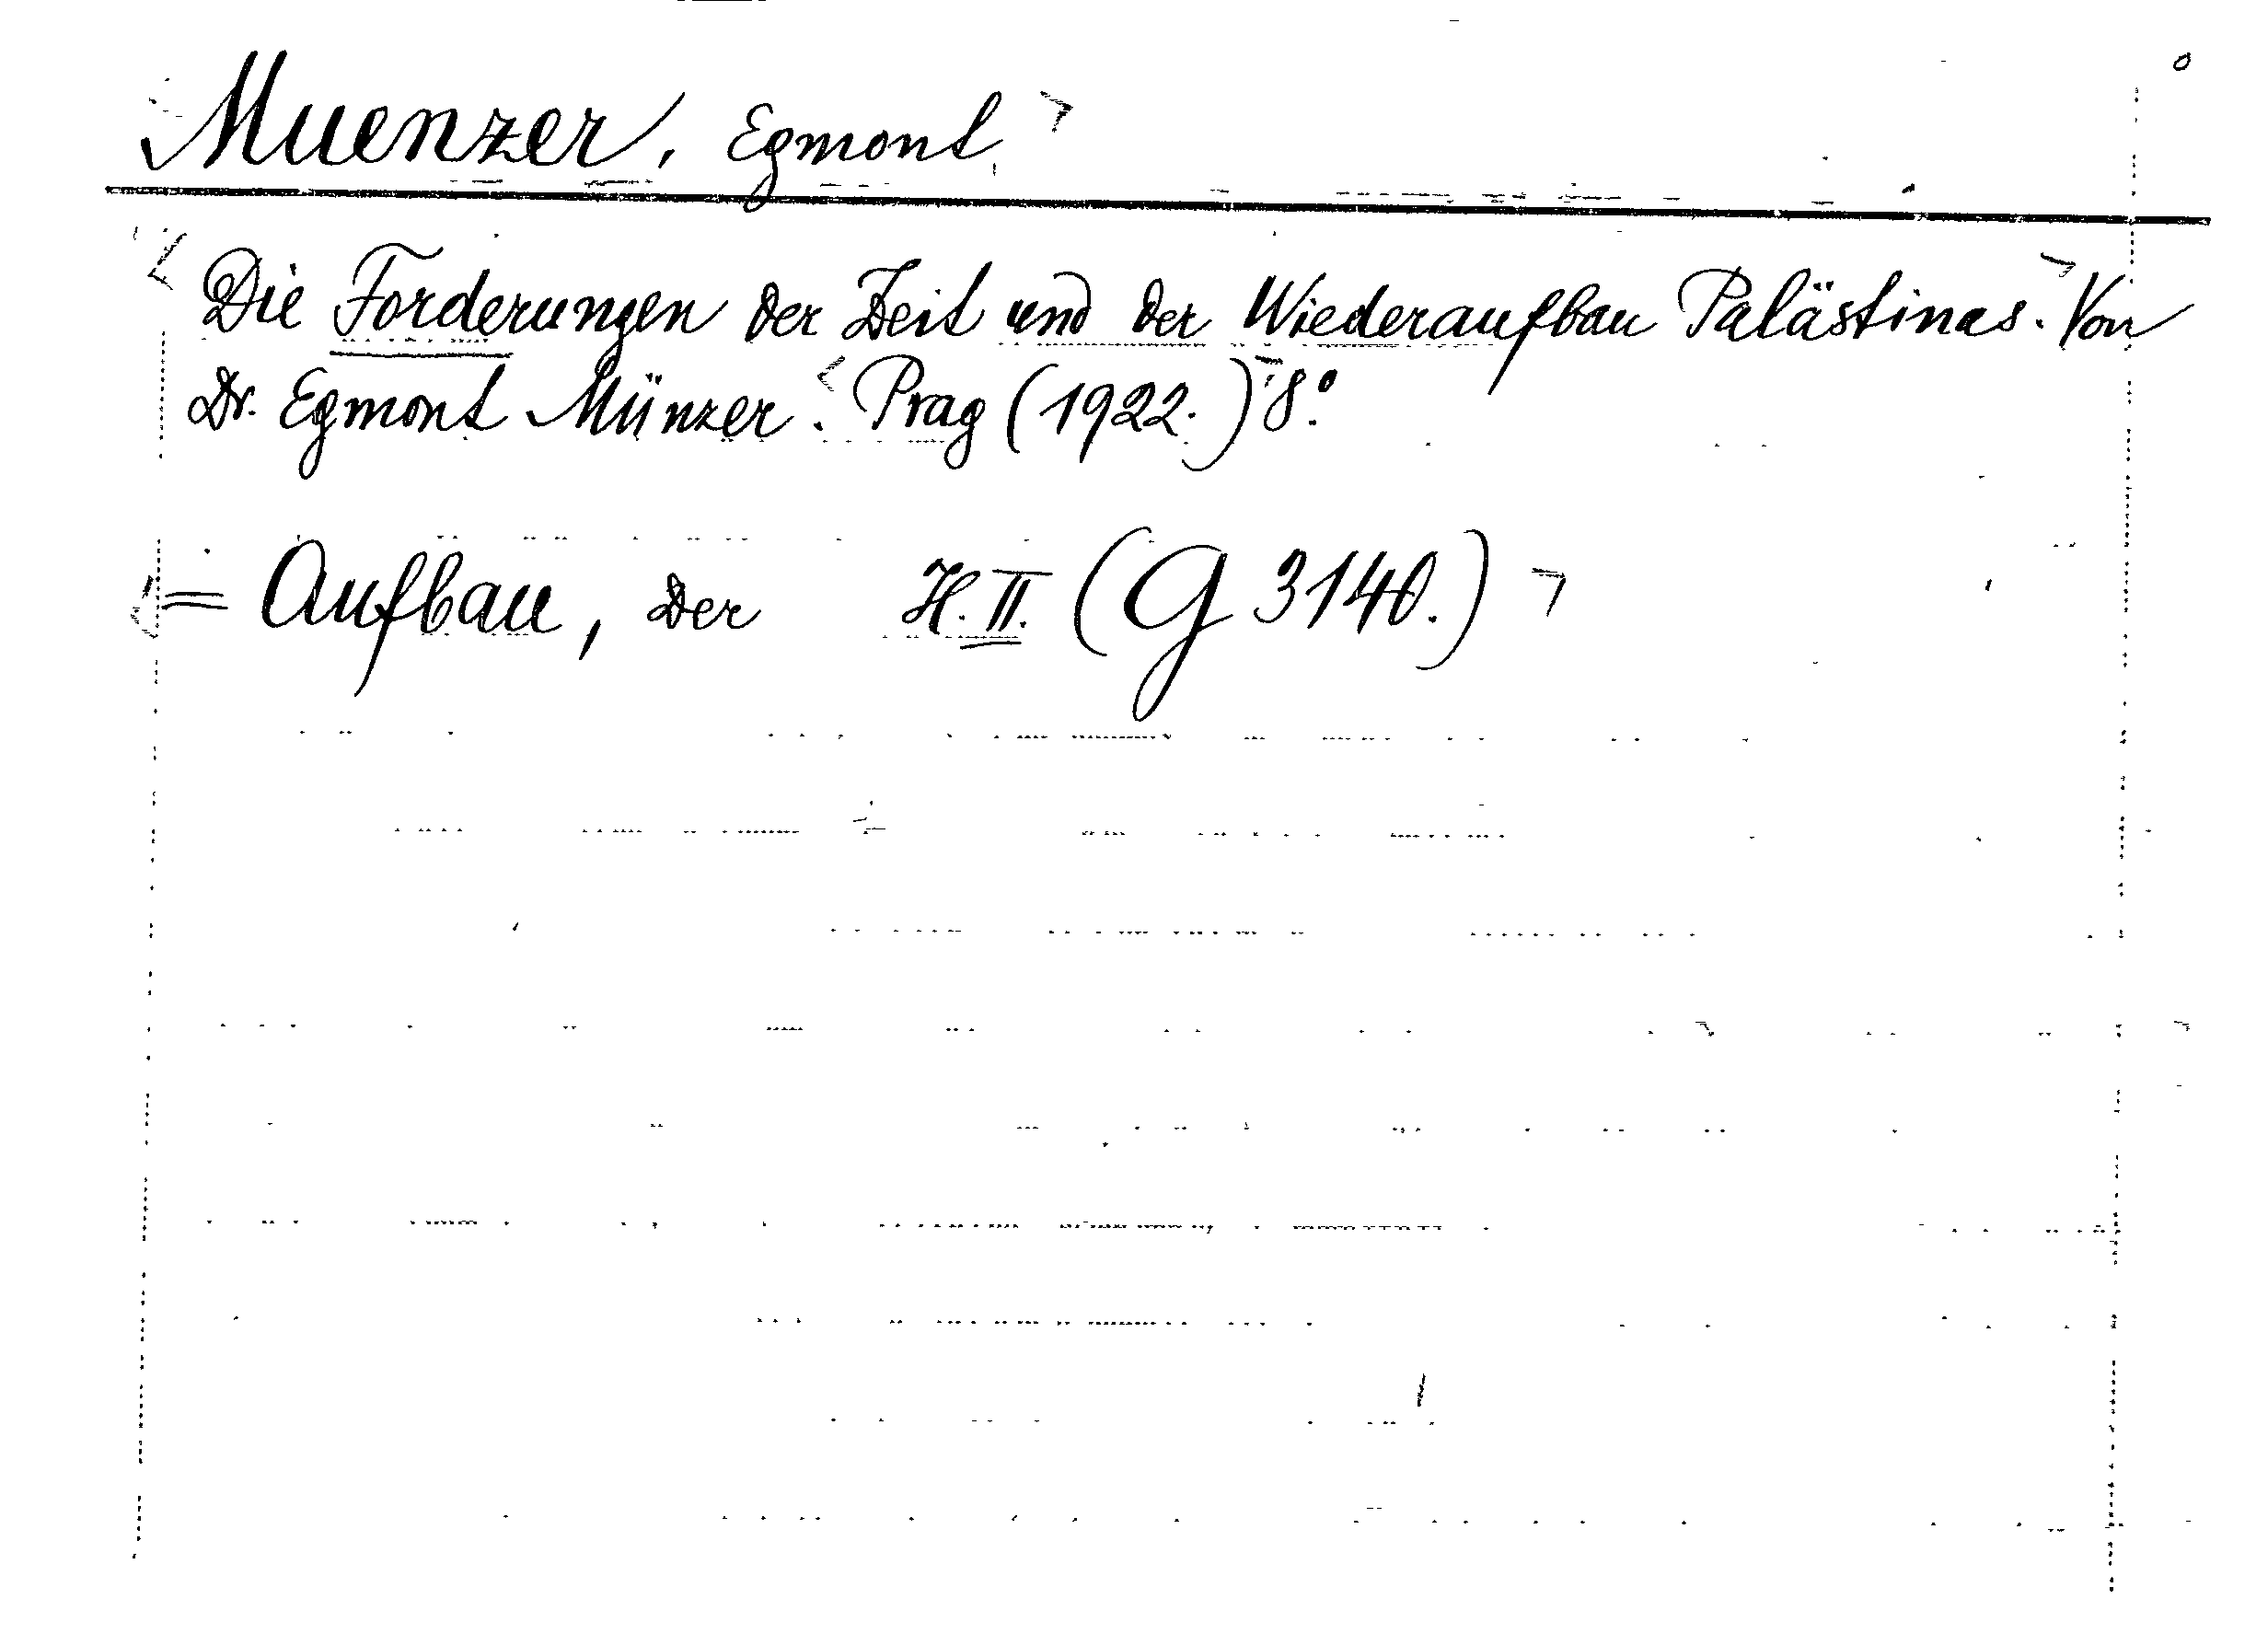 Muenzer, Egmont
Die Forderungen der Zeit und der Wiederaufbau Palästinas. Von
Dr. Egmont Münzer. Prag (1922.) 8°.
= Aufbau, Der H. II. (G 3140.)